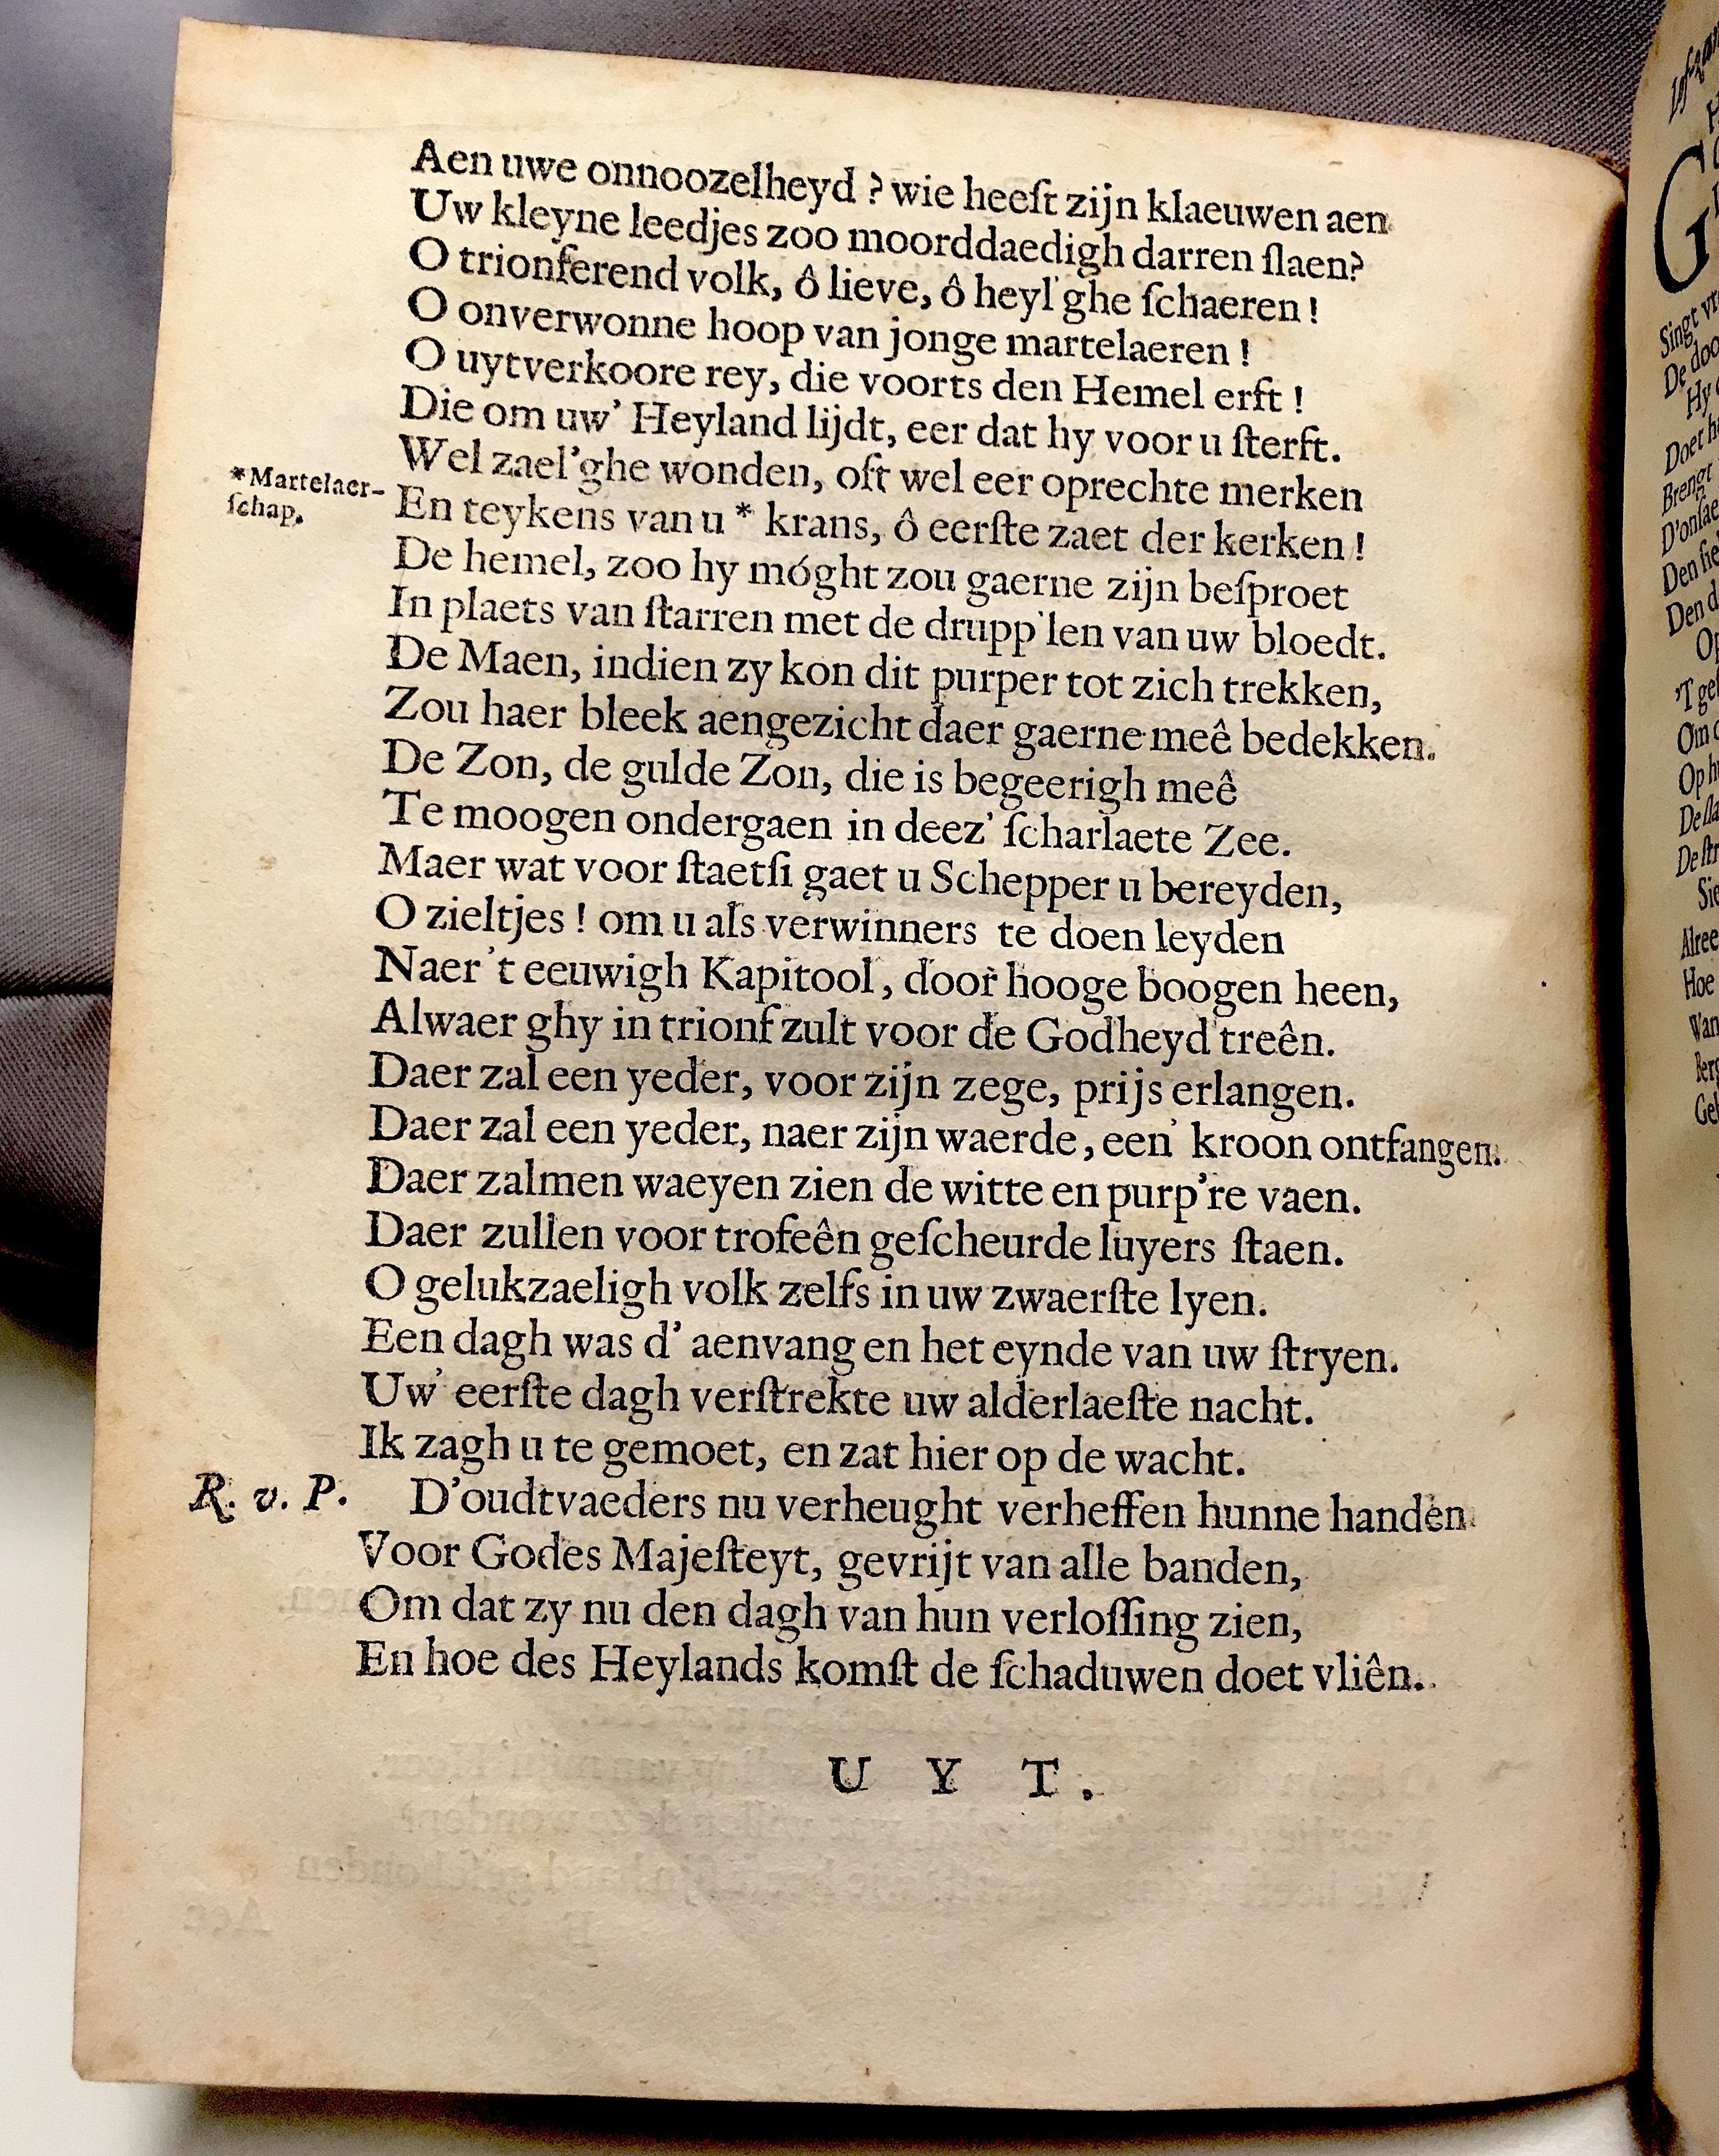 Aen uwe onnoozelheyd ? wie heeft zijn klaeuwen aen
Uw kleyne leedjes zoo moorddaedigh darren ſlaen?
O trionferend volk, ô lieve, ô heyl'ghe ſchaeren !
O onverwonne hoop van jonge martelaeren !
O uytverkoore rey, die voorts den Hemel erft !
Die om uw' Heyland lijdt, eer dat hy voor u ſterft.
Wel zael'ghe wonden, oft wel eer oprechte merken
*Martelaer-
ſchap.
En teykens van u * krans, ô eerſte zaet der kerken !
De hemel, zoo hy móght zou gaerne zijn beſproet
In plaets van ſtarren met de drupp'len van uw bloedt.
De Maen, indien zy kon dit purper tot zich trekken,
Zou haer bleek aengezicht daer gaerne meê bedekken.
De Zon, de gulde Zon, die is begeerigh meê
Te moogen ondergaen in deez' ſcharlaete Zee.
Maer wat voor ſtaetſi gaet u Schepper u bereyden,
O zieltjes ! om u als verwinners te doen leyden
Naer 't eeuwigh Kapitool, door hooge boogen heen,
Alwaer ghy in trionf zult voor de Godheyd treên.
Daer zal een yeder, voor zijn zege, prijs erlangen.
Daer zal een yeder, naer zijn waerde, een' kroon ontfangen.
Daer zalmen waeyen zien de witte en purp're vaen.
Daer zullen voor trofeên geſcheurde luyers ſtaen.
O gelukzaeligh volk zelfs in uw zwaerſte lyen.
Een dagh was d' aenvang en het eynde van uw ſtryen.
Uw' eerſte dagh verſtrekte uw alderlaeſte nacht.
Ik zagh u te gemoet, en zat hier op de wacht.
R. v. P. D'oudtvaeders nu verheught verheffen hunne handen
Voor Godes Majeſteyt, gevrijt van alle banden,
Om dat zy nu den dagh van hun verloſſing zien,
En hoe des Heylands komſt de ſchaduwen doet vliên.
U Y T .
G
Singt
De
Hy
Doet
Brengt
Den
Den
Op
'T
Om
Op
Sie
Hoe